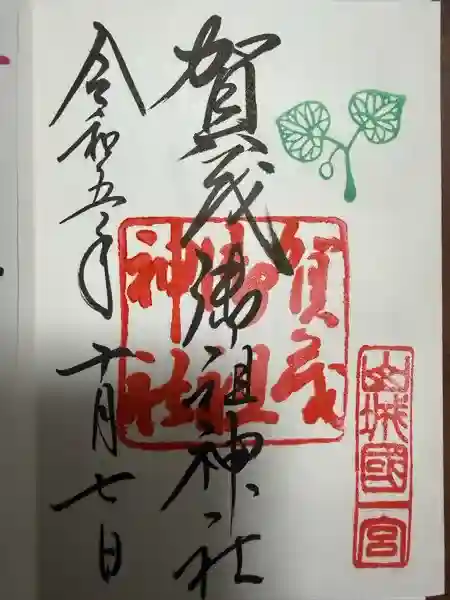 山城國一宮
賀茂御祖神社
賀茂御祖神社
令和五年十月七日